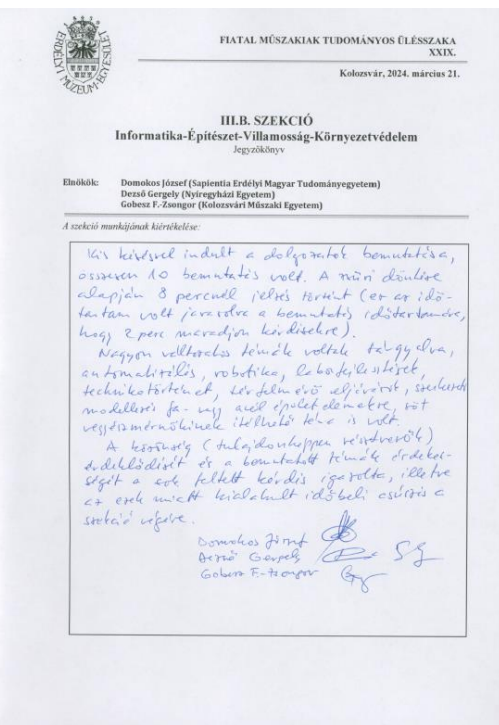 ERDÉLYI MÚZEUM-EGYESÜLET
FIATAL MŰSZAKIAK TUDOMÁNYOS ÜLÉSSZAKA
XXIX.
Kolozsvár, 2024. március 21.
III.B. SZEKCIÓ
Informatika-Építészet-Villamosság-Környezetvédelem
Jegyzőkönyv
Elnökök: Domokos József (Sapientia Erdélyi Magyar Tudományegyetem)
Dezső Gergely (Nyíregyházi Egyetem)
Gobesz F.-Zsongor (Kolozsvári Műszaki Egyetem)
A szekció munkájának kiértékelése:
Kis késéssel indult a dolgozatok bemutatása,
összesen 10 bemutatás volt. A zsűri döntése
alapján 8 percnél jelzés történt (ez az idő-
tartam volt javasolva a bemutatás időtartamára,
hogy 2 perc maradjon kérdésekre).
Nagyon változatos témák voltak tárgyalva,
automatizálás, robotika, laborfejlesztések,
technikatörténet, sérfelmérő eljárások, szerkezeti
modellezés fa- vagy acél épületelemekre, sőt
vegyészmérnökinek ítélhető téma is volt.
A közönség (tulajdonképpen résztvevők)
érdeklődését és a bemutatott témák érdekes-
ségét a sok feltett kérdés igazolta, illetve
az ezek miatt kialakult időbeli csúszás a
szekció végére.
Domokos József
Dezső Gergely
Gobesz F.-Zsongor